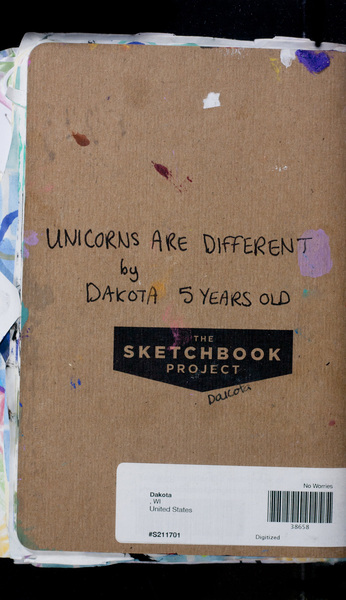 UNICORNS ARE DIFFERENT
by
DAKOTA 5 YEARS OLD
THE
SKETCHBOOK
PROJECT
Dakota
No Worries
Dakota
, WI
United States
38658
#S211701
Digitized